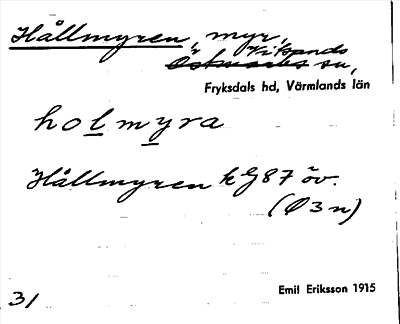 Hållmyren, myr,
Vitsands
Östmarks sn,
Fryksdals hd, Värmlands län
holmyra
Hållmyren kG87 öv.
(Ø3n)
31
Emil Eriksson 1915